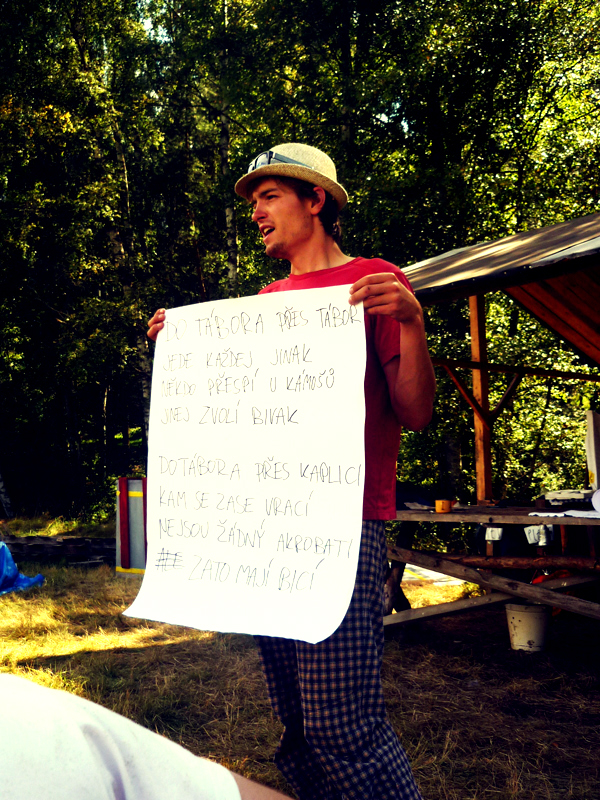 DO TÁBORA PŘES TÁBOR
JEDE KAŽDEJ JINAK
NĚKDO PŘESPÍ U KÁMOŠŮ
JINEJ ZVOLÍ BIVAK
DO TÁBORA PŘES KAPLICI
KAM SE ZASE VRACÍ
NEJSOU ŽÁDNÝ AKROBATI
ZATO MAJÍ BICÍ